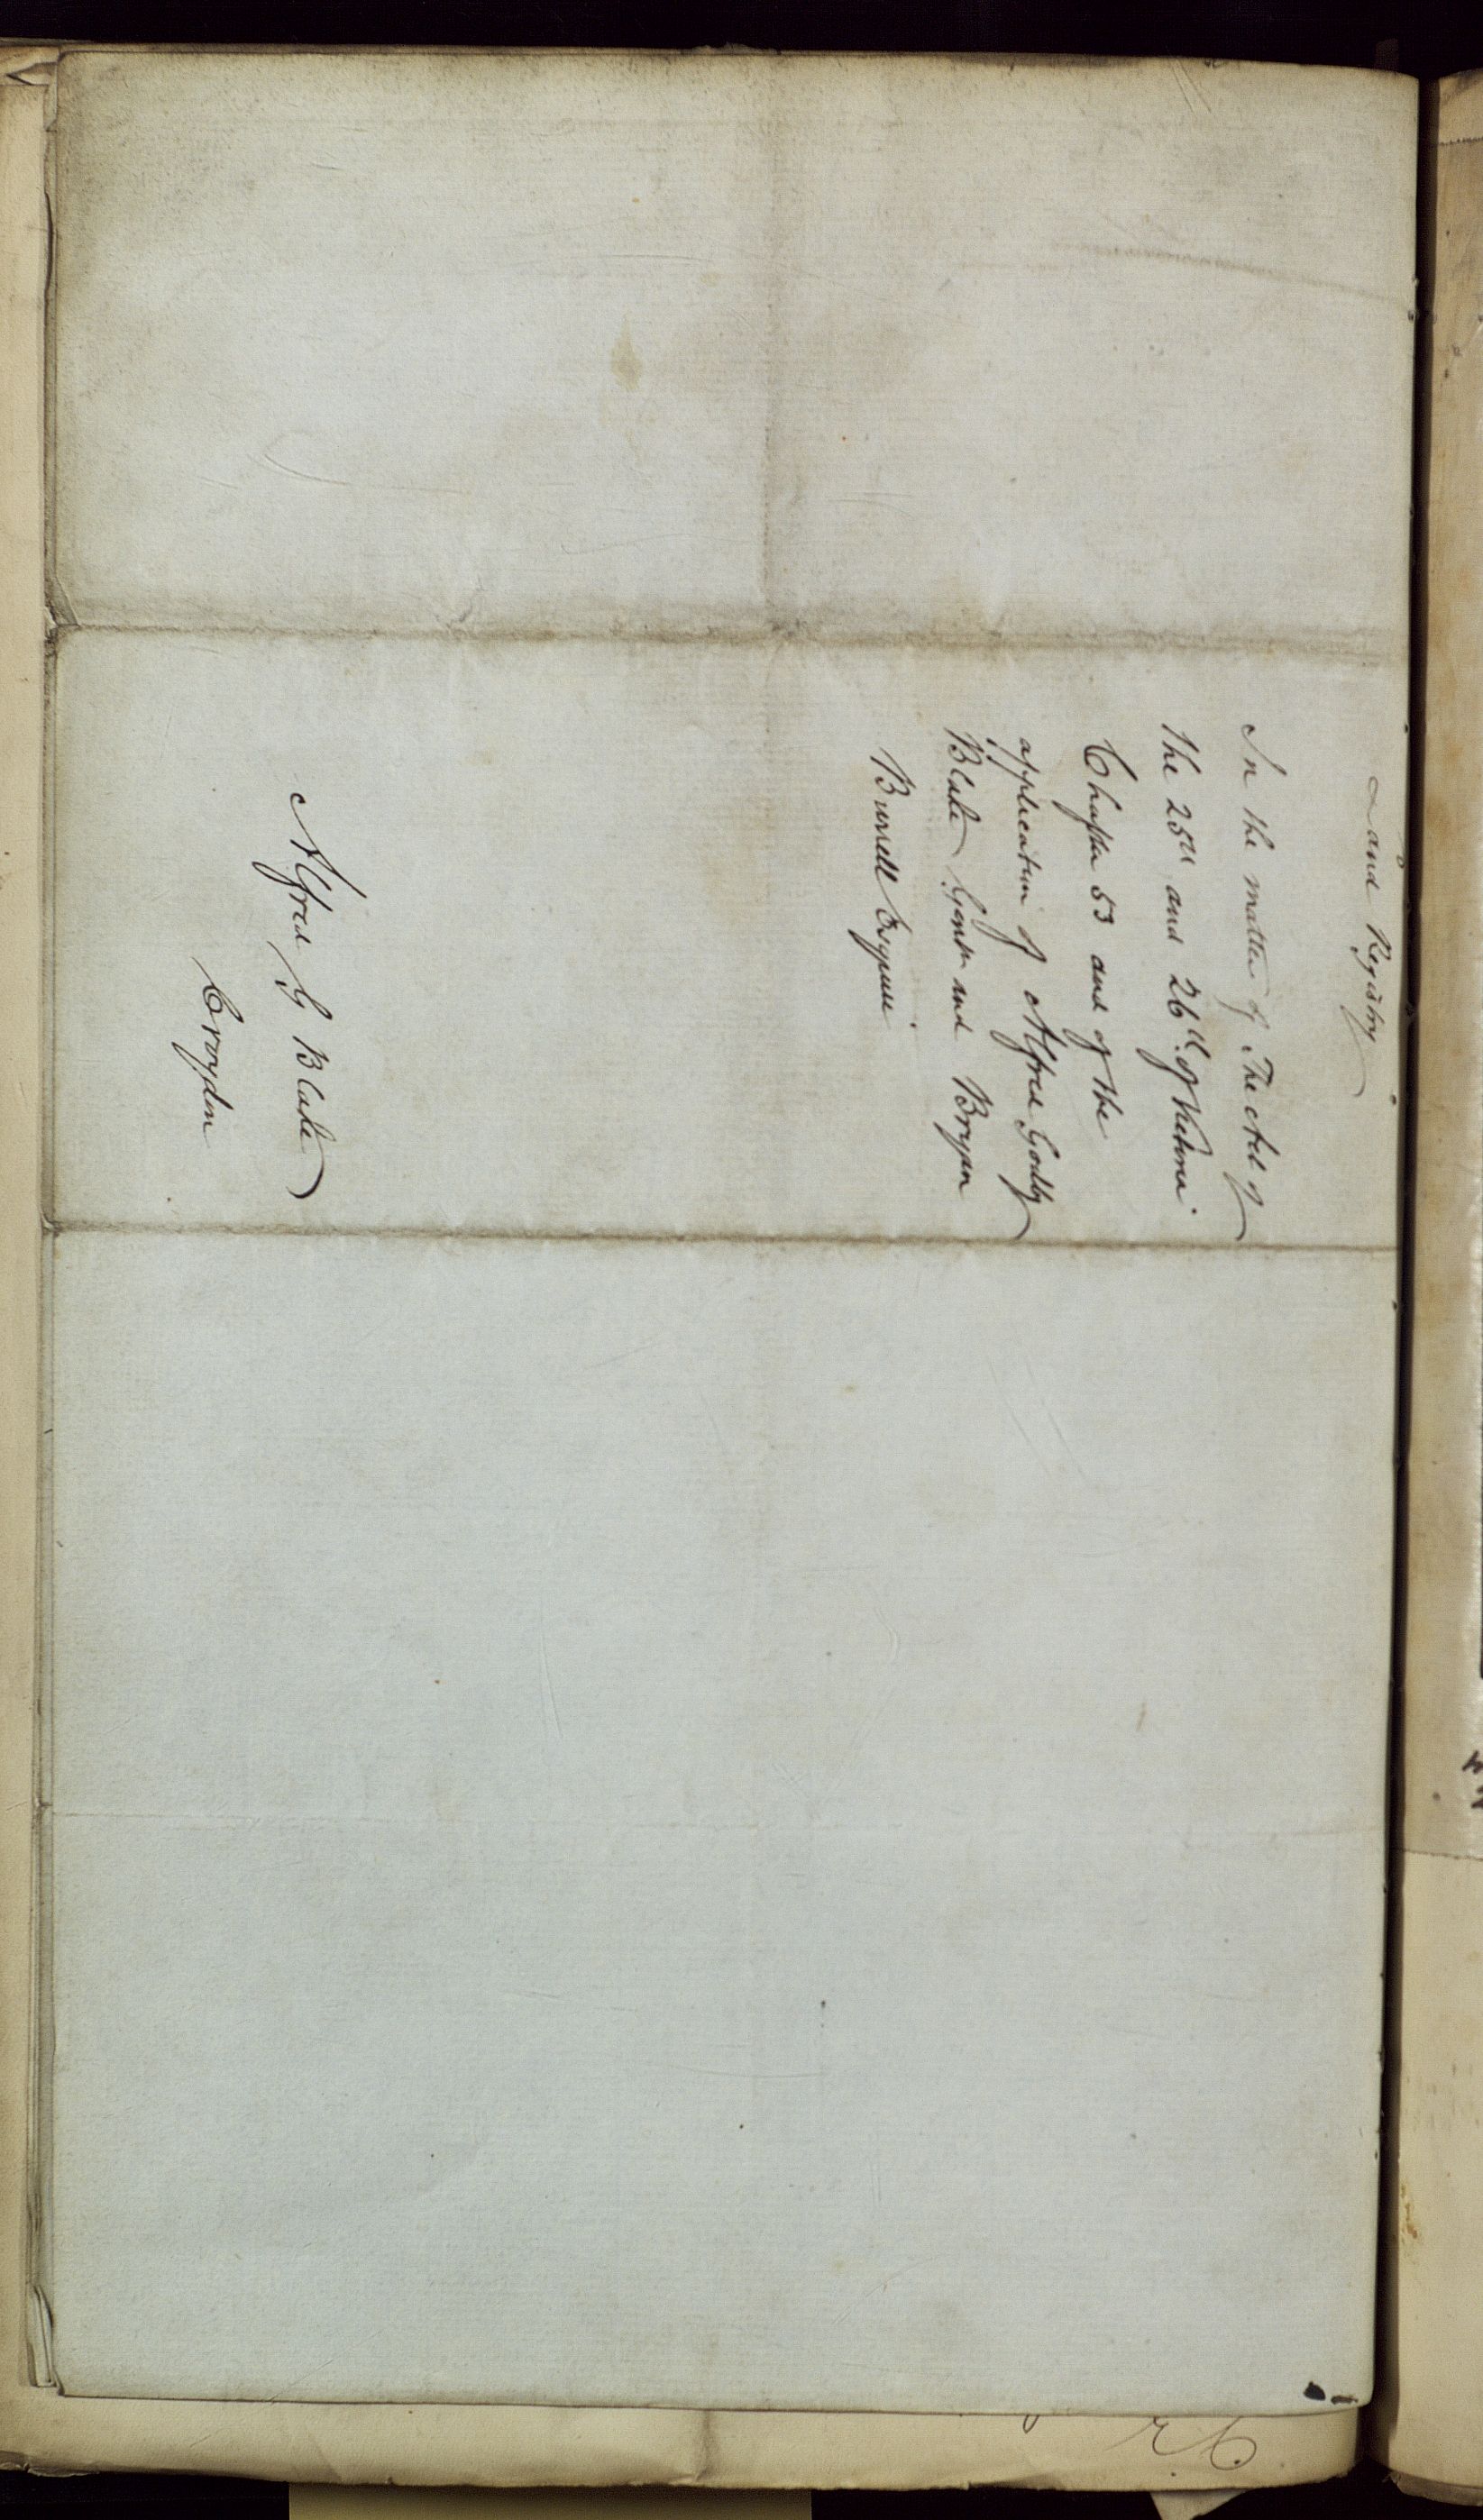 Land Registry
In the matter of The Act of
the 25th and 26th of Victoria
Chapter 53 and of the
application of Alfred Godly
Blake Gentn and Bryan
Burrell Esquire.
Alfred G Blake
Croydon